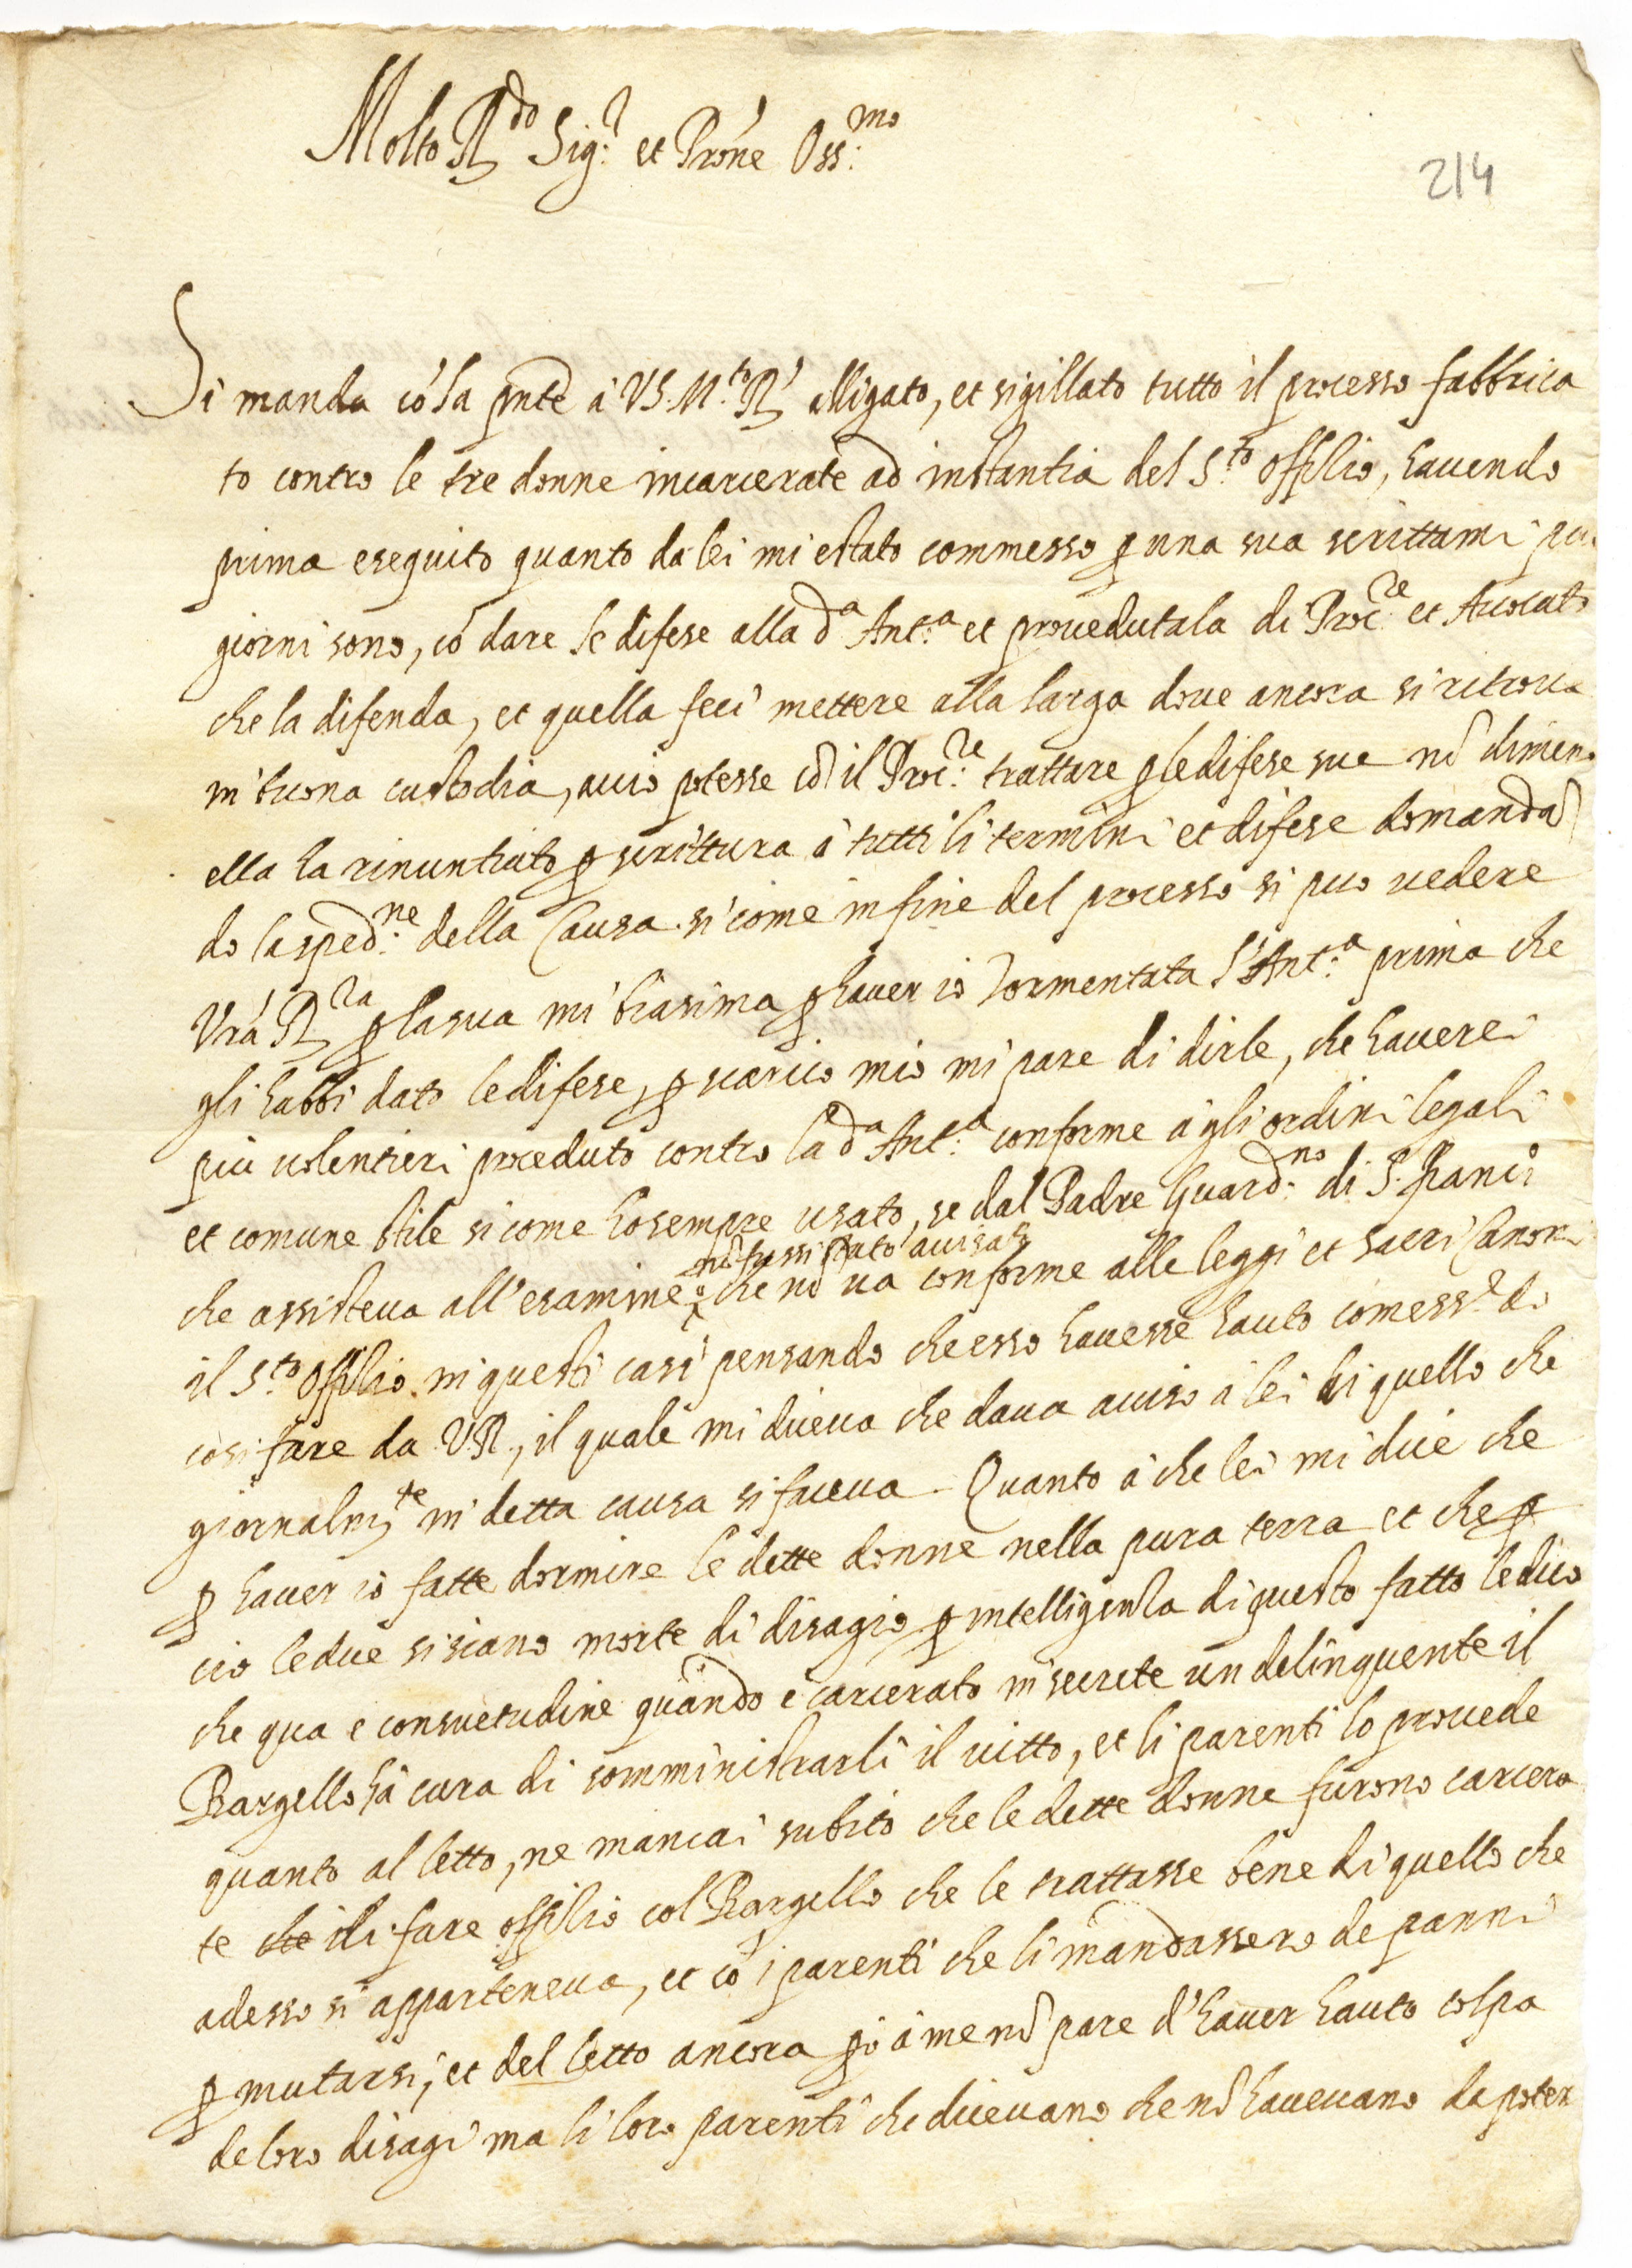 Molto R.do Sig.r et Pro'ne Oss.mo
214
Si manda co' la pnte à VS. M.to R. alligato, et sigillato tutto il processo fabbrica
to contro le tre donne incarcerate ad instantia del S.to Offitio, havendo
prima eseguito quanto da lei mi è stato commesso p una sua scrittami
giorni sono, cō dare le difese alla d.a Ant.a et provedutala di Proc.re et Avocato
che la difenda, et quella feci mettere alla larga dove ancora si ritrova
in buona custodia, acciò potesse cō il Proc.re trattare p le difese sue nō dimeno
ella ha rinuntiato p scrittura à tutti li termini et difese domandā
do la sped.ne della Causa si come in fine del processo si può vedere
Vrā R.ra p la sua mi biasima p haver io tormentata l'Ant.a prima che
gli habbi dato le difese, p scarico mio mi pare di dirle, che haverei
più volentieri proceduto contro la d.a Ant.a conforme à gli ordini legali
et comune stile si come ho sempre usato, se dal Padre Guard.no di S. Franc.o
che assisteva all'esamine
nō fussi stato avisato
che nō va conforme alle leggi et sacri Canoni
il S.to Offitio in questi casi pensando che esso havesse hauto comess.e di
così fare da V.R., il quale mi diceva che dava aviso à lei di quello che
giornalm.te in detta causa si faceva. Quanto à che lei mi dice che
p haver io fatte dormire le dette donne nella pura terra et che p
ciò le due si siano morte di disagio p intelligenza di questo fatto le dico
che qua è consuetudine quando è carcerato in secrete un delinquente il
Bargello hà cura di somministrarli il vitto, et li parenti lo provede
quanto al letto, ne mancai subito che le dette donne furono carcera
te che di fare offitio col Bargello che le trattasse bene di quello che
adesso si apparteneva, et cō i parenti che li mandassero de panni
p mutarsi, et del letto ancora però à me nō pare d'haver hauto colpa
de loro disagi ma li loro parenti che dicevano che nō havevano da poter